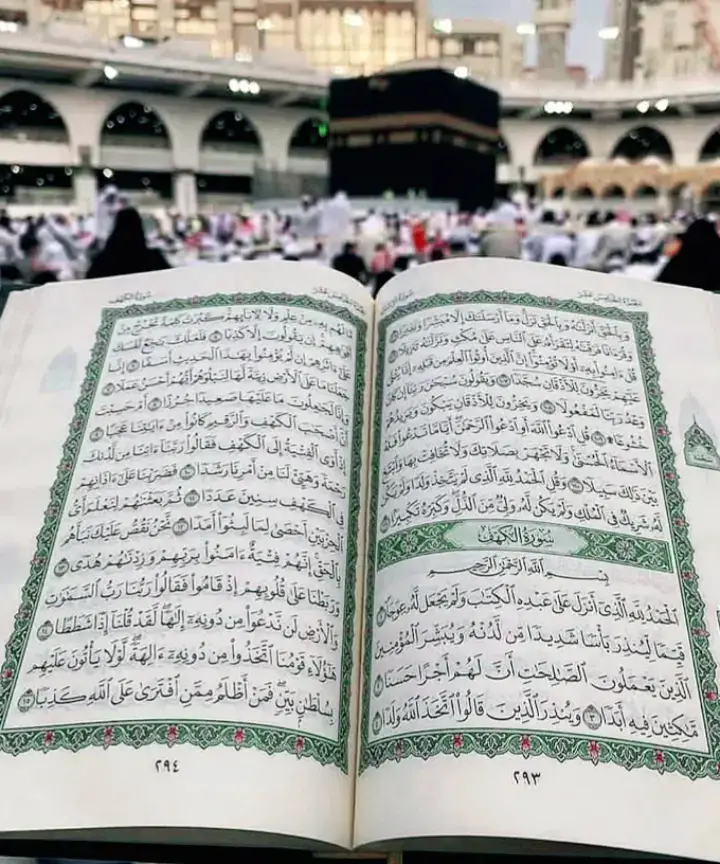 الجزء الخامس عشر
وَبِٱلْحَقِّ أَنزَلْنَٰهُ وَبِٱلْحَقِّ نَزَلَ وَمَآ أَرْسَلْنَٰكَ إِلَّا مُبَشِّرًا وَنَذِيرًا ١٠٥
وَقُرْءَانًا فَرَقْنَٰهُ لِتَقْرَأَهُۥ عَلَى ٱلنَّاسِ عَلَىٰ مُكْثٍ وَنَزَّلْنَٰهُ تَنزِيلًا ١٠٦
قُلْ ءَامِنُوا۟ بِهِۦٓ أَوْ لَا تُؤْمِنُوٓا۟ إِنَّ ٱلَّذِينَ أُوتُوا۟ ٱلْعِلْمَ مِن قَبْلِهِۦٓ إِذَا يُتْلَىٰ
عَلَيْهِمْ يَخِرُّونَ لِلْأَذْقَانِ سُجَّدًا ١٠٧ وَيَقُولُونَ سُبْحَٰنَ رَبِّنَآ إِن كَانَ
وَعْدُ رَبِّنَا لَمَفْعُولًا ١٠٨ وَيَخِرُّونَ لِلْأَذْقَانِ يَبْكُونَ وَيَزِيدُهُمْ
خُشُوعًا ١٠٩ قُلِ ٱدْعُوا۟ ٱللَّهَ أَوِ ٱدْعُوا۟ ٱلرَّحْمَٰنَ أَيًّا مَّا تَدْعُوا۟ فَلَهُ
ٱلْأَسْمَآءُ ٱلْحُسْنَىٰ وَلَا تَجْهَرْ بِصَلَاتِكَ وَلَا تُخَافِتْ بِهَا وَٱبْتَغِ
بَيْنَ ذَٰلِكَ سَبِيلًا ١١٠ وَقُلِ ٱلْحَمْدُ لِلَّهِ ٱلَّذِى لَمْ يَتَّخِذْ وَلَدًا وَلَمْ يَكُن
لَّهُۥ شَرِيكٌ فِى ٱلْمُلْكِ وَلَمْ يَكُن لَّهُۥ وَلِىٌّ مِّنَ ٱلذُّلِّ وَكَبِّرْهُ تَكْبِيرًا ١١١
سُورَةُ الكَهْفِ
بِسْمِ ٱللَّهِ ٱلرَّحْمَٰنِ ٱلرَّحِيمِ
ٱلْحَمْدُ لِلَّهِ ٱلَّذِىٓ أَنزَلَ عَلَىٰ عَبْدِهِ ٱلْكِتَٰبَ وَلَمْ يَجْعَل لَّهُۥ عِوَجَا ١
قَيِّمًا لِّيُنذِرَ بَأْسًا شَدِيدًا مِّن لَّدُنْهُ وَيُبَشِّرَ ٱلْمُؤْمِنِينَ
ٱلَّذِينَ يَعْمَلُونَ ٱلصَّٰلِحَٰتِ أَنَّ لَهُمْ أَجْرًا حَسَنًا ٢
مَّٰكِثِينَ فِيهِ أَبَدًا ٣ وَيُنذِرَ ٱلَّذِينَ قَالُوا۟ ٱتَّخَذَ ٱللَّهُ وَلَدًا ٤
٢٩٣
الجزء الخامس عشر
سورة الكهف
مَّا لَهُم بِهِۦ مِنْ عِلْمٍ وَلَا لِـَٔابَآئِهِمْ كَبُرَتْ كَلِمَةً تَخْرُجُ مِنْ
أَفْوَٰهِهِمْ إِن يَقُولُونَ إِلَّا كَذِبًا ٥ فَلَعَلَّكَ بَٰخِعٌ نَّفْسَكَ
عَلَىٰٓ ءَاثَٰرِهِمْ إِن لَّمْ يُؤْمِنُوا۟ بِهَٰذَا ٱلْحَدِيثِ أَسَفًا ٦ إِنَّا
جَعَلْنَا مَا عَلَى ٱلْأَرْضِ زِينَةً لَّهَا لِنَبْلُوَهُمْ أَيُّهُمْ أَحْسَنُ عَمَلًا ٧
وَإِنَّا لَجَٰعِلُونَ مَا عَلَيْهَا صَعِيدًا جُرُزًا ٨ أَمْ حَسِبْتَ
أَنَّ أَصْحَٰبَ ٱلْكَهْفِ وَٱلرَّقِيمِ كَانُوا۟ مِنْ ءَايَٰتِنَا عَجَبًا ٩
إِذْ أَوَى ٱلْفِتْيَةُ إِلَى ٱلْكَهْفِ فَقَالُوا۟ رَبَّنَآ ءَاتِنَا مِن لَّدُنكَ
رَحْمَةً وَهَيِّئْ لَنَا مِنْ أَمْرِنَا رَشَدًا ١٠ فَضَرَبْنَا عَلَىٰٓ ءَاذَانِهِمْ
فِى ٱلْكَهْفِ سِنِينَ عَدَدًا ١١ ثُمَّ بَعَثْنَٰهُمْ لِنَعْلَمَ أَىُّ
ٱلْحِزْبَيْنِ أَحْصَىٰ لِمَا لَبِثُوٓا۟ أَمَدًا ١٢ نَّحْنُ نَقُصُّ عَلَيْكَ نَبَأَهُم
بِٱلْحَقِّ إِنَّهُمْ فِتْيَةٌ ءَامَنُوا۟ بِرَبِّهِمْ وَزِدْنَٰهُمْ هُدًى ١٣
وَرَبَطْنَا عَلَىٰ قُلُوبِهِمْ إِذْ قَامُوا۟ فَقَالُوا۟ رَبُّنَا رَبُّ ٱلسَّمَٰوَٰتِ
وَٱلْأَرْضِ لَن نَّدْعُوَا۟ مِن دُونِهِۦٓ إِلَٰهًا لَّقَدْ قُلْنَآ إِذًا شَطَطًا ١٤
هَٰٓؤُلَآءِ قَوْمُنَا ٱتَّخَذُوا۟ مِن دُونِهِۦٓ ءَالِهَةً لَّوْلَا يَأْتُونَ عَلَيْهِم
بِسُلْطَٰنٍۭ بَيِّنٍ فَمَنْ أَظْلَمُ مِمَّنِ ٱفْتَرَىٰ عَلَى ٱللَّهِ كَذِبًا ١٥
٢٩٤